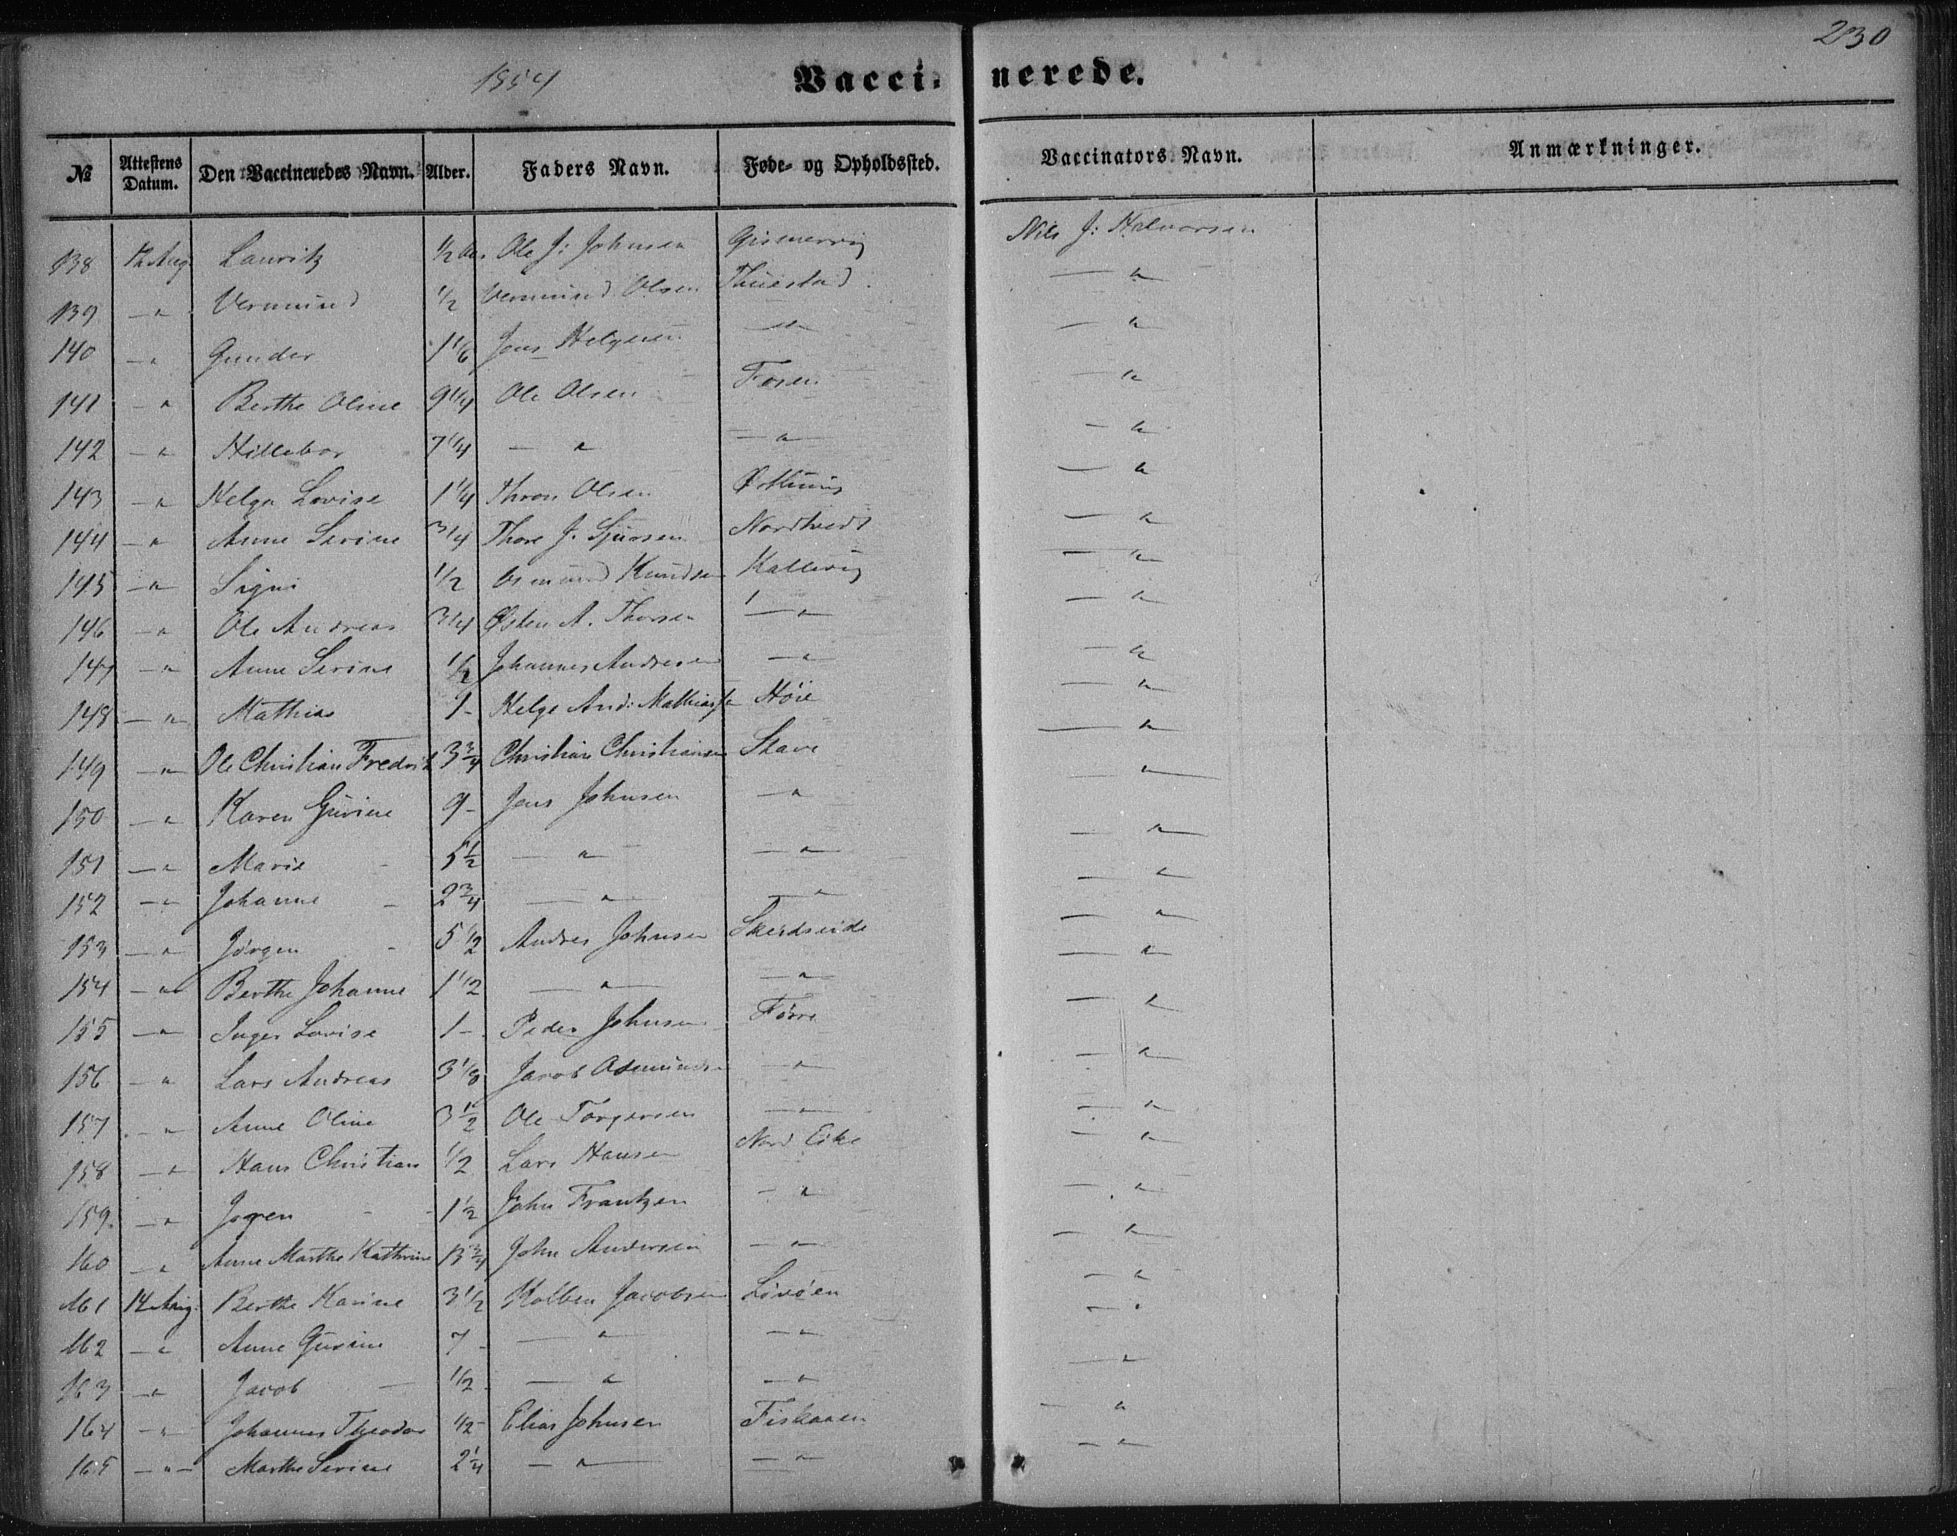 230
1854 Vaccinerede.
№ Attestens Datum. Den Vaccineredes Navn. Alder. Faders Navn. Føde- og Opholdssted. Vaccinators Navn. Anmærkninger.
138 Aug Lauritz 1/2 Ole J: Johnsen Gismervig Nils J: Halvorsen
139 — " Vermund 1/2 Vermund Olsen Thuestad — "
140 — " Gunder 1 1/6 Jens Helgesen — " — "
141 — " Berthe Oline 9 1/4 Ole Olsen Fosen — "
142 — " Hillebor 7 1/4 — " — " — "
143 — " Helga Lovise 1 1/4 Thron Olsen — "
144 — " Anne Serine 3/4 Thore J. Sjursen Nordtvedt — "
145 — " Signi 1/2 Osmund Knudsen Kallevig — "
146 — " Ole Andreas 3/4 Østen A. Thorsen — " — "
147 — " Anne Serine 1/2 Johannes Andresen — " — "
148 — " Mathias 9 - Helge And: Mathiass Høie — "
149 — " Ole Christian Fredrik 3 3/4 Christian Christiansen Stave — "
150 — " Karen Gurine 9 - Jens Johnsen — " — "
151 — " Marie 5 1/2 — " — " — "
152 — " Johanne 2 3/4 — " — " — "
153 — " Jørgen 5 1/2 Andres Johnsen — "
154 — " Berthe Johanne 1 1/2 — " — " — "
155 — " Inger Lovise 1 - Peder Johnsen Førre — "
156 — " Lars Andreas 3 1/8 Jacob Osmunds — " — "
157 — " Anne Oline 3 1/2 Ole Torgersen — " — "
158 — " Hans Christian 1/2 Lars Hansen Nord Eike — "
159 — " 1 1/2 John Frantzen — " — "
160 — " Anne Marthe Kathrine 13 3/4 John Andersen — " — "
161 14 Aug: Berthe Karine 3 1/2 Kolben Jacobsen Lovøen — "
162 — " Anne Gurine 7 - — " — " — "
163 — " Jacob 1/2 — " — " — "
164 — " Johannes Theodor Elias Johnsen Fiskaaen — "
165 — " — Marthe Serine 2 1/4 — " — " — "